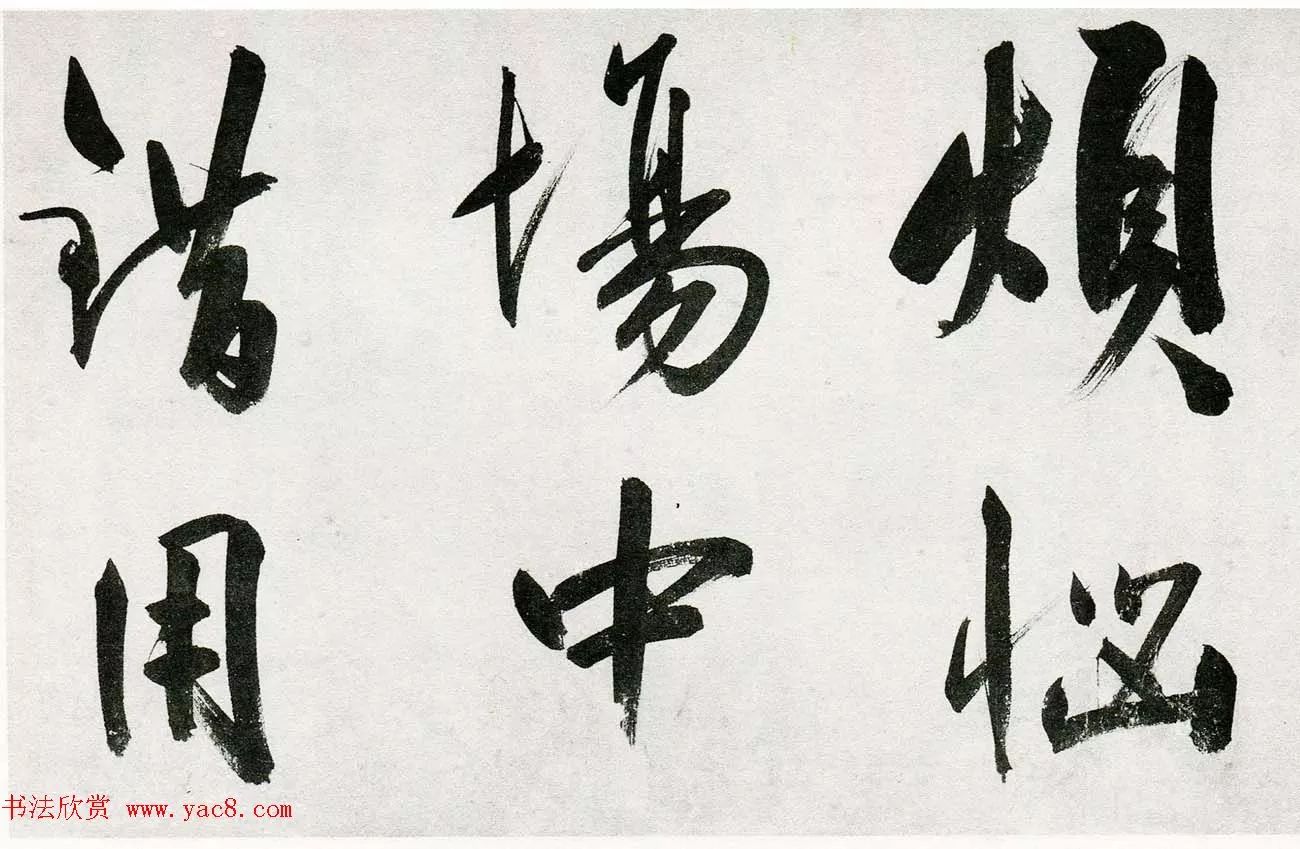 煩惱
塲中
錯用
书法欣赏 www.yac8.com